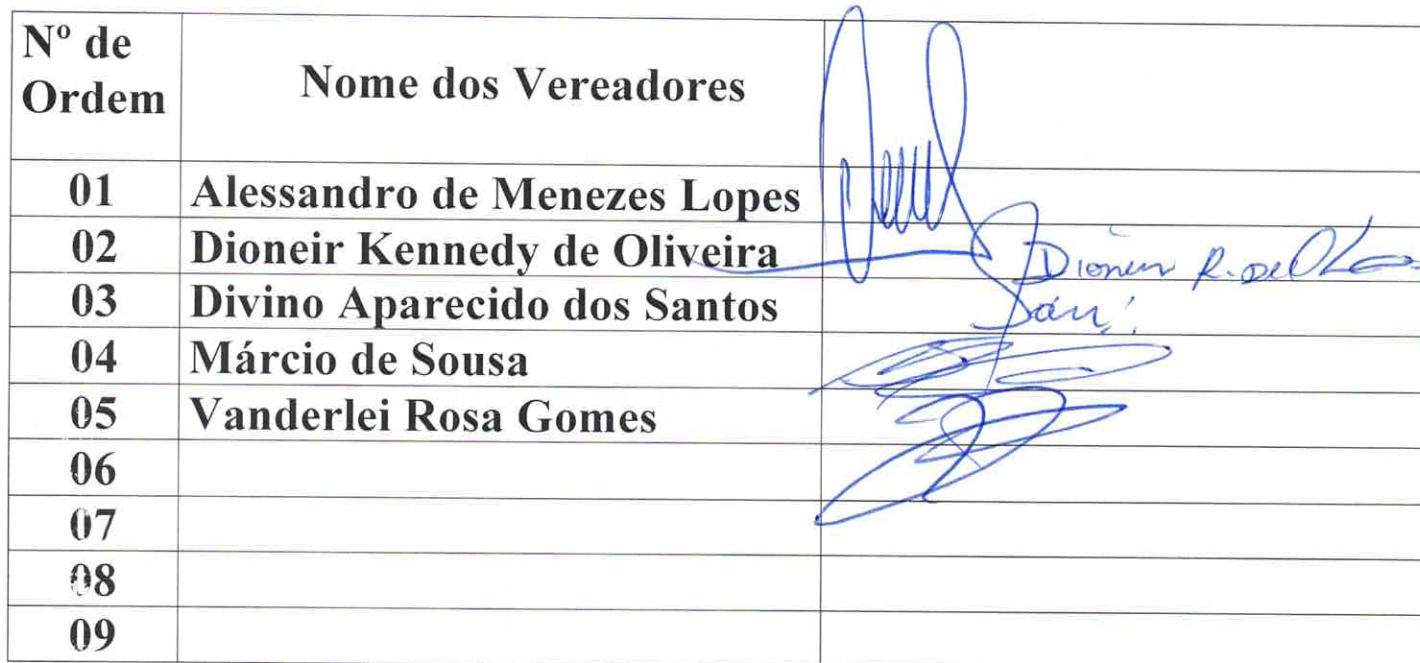 Nº de
Ordem
Nome dos Vereadores
01 Alessandro de Menezes Lopes
02 Dioneir Kennedy de Oliveira
03 Divino Aparecido dos Santos
04 Márcio de Sousa
05 Vanderlei Rosa Gomes
06
07
08
09